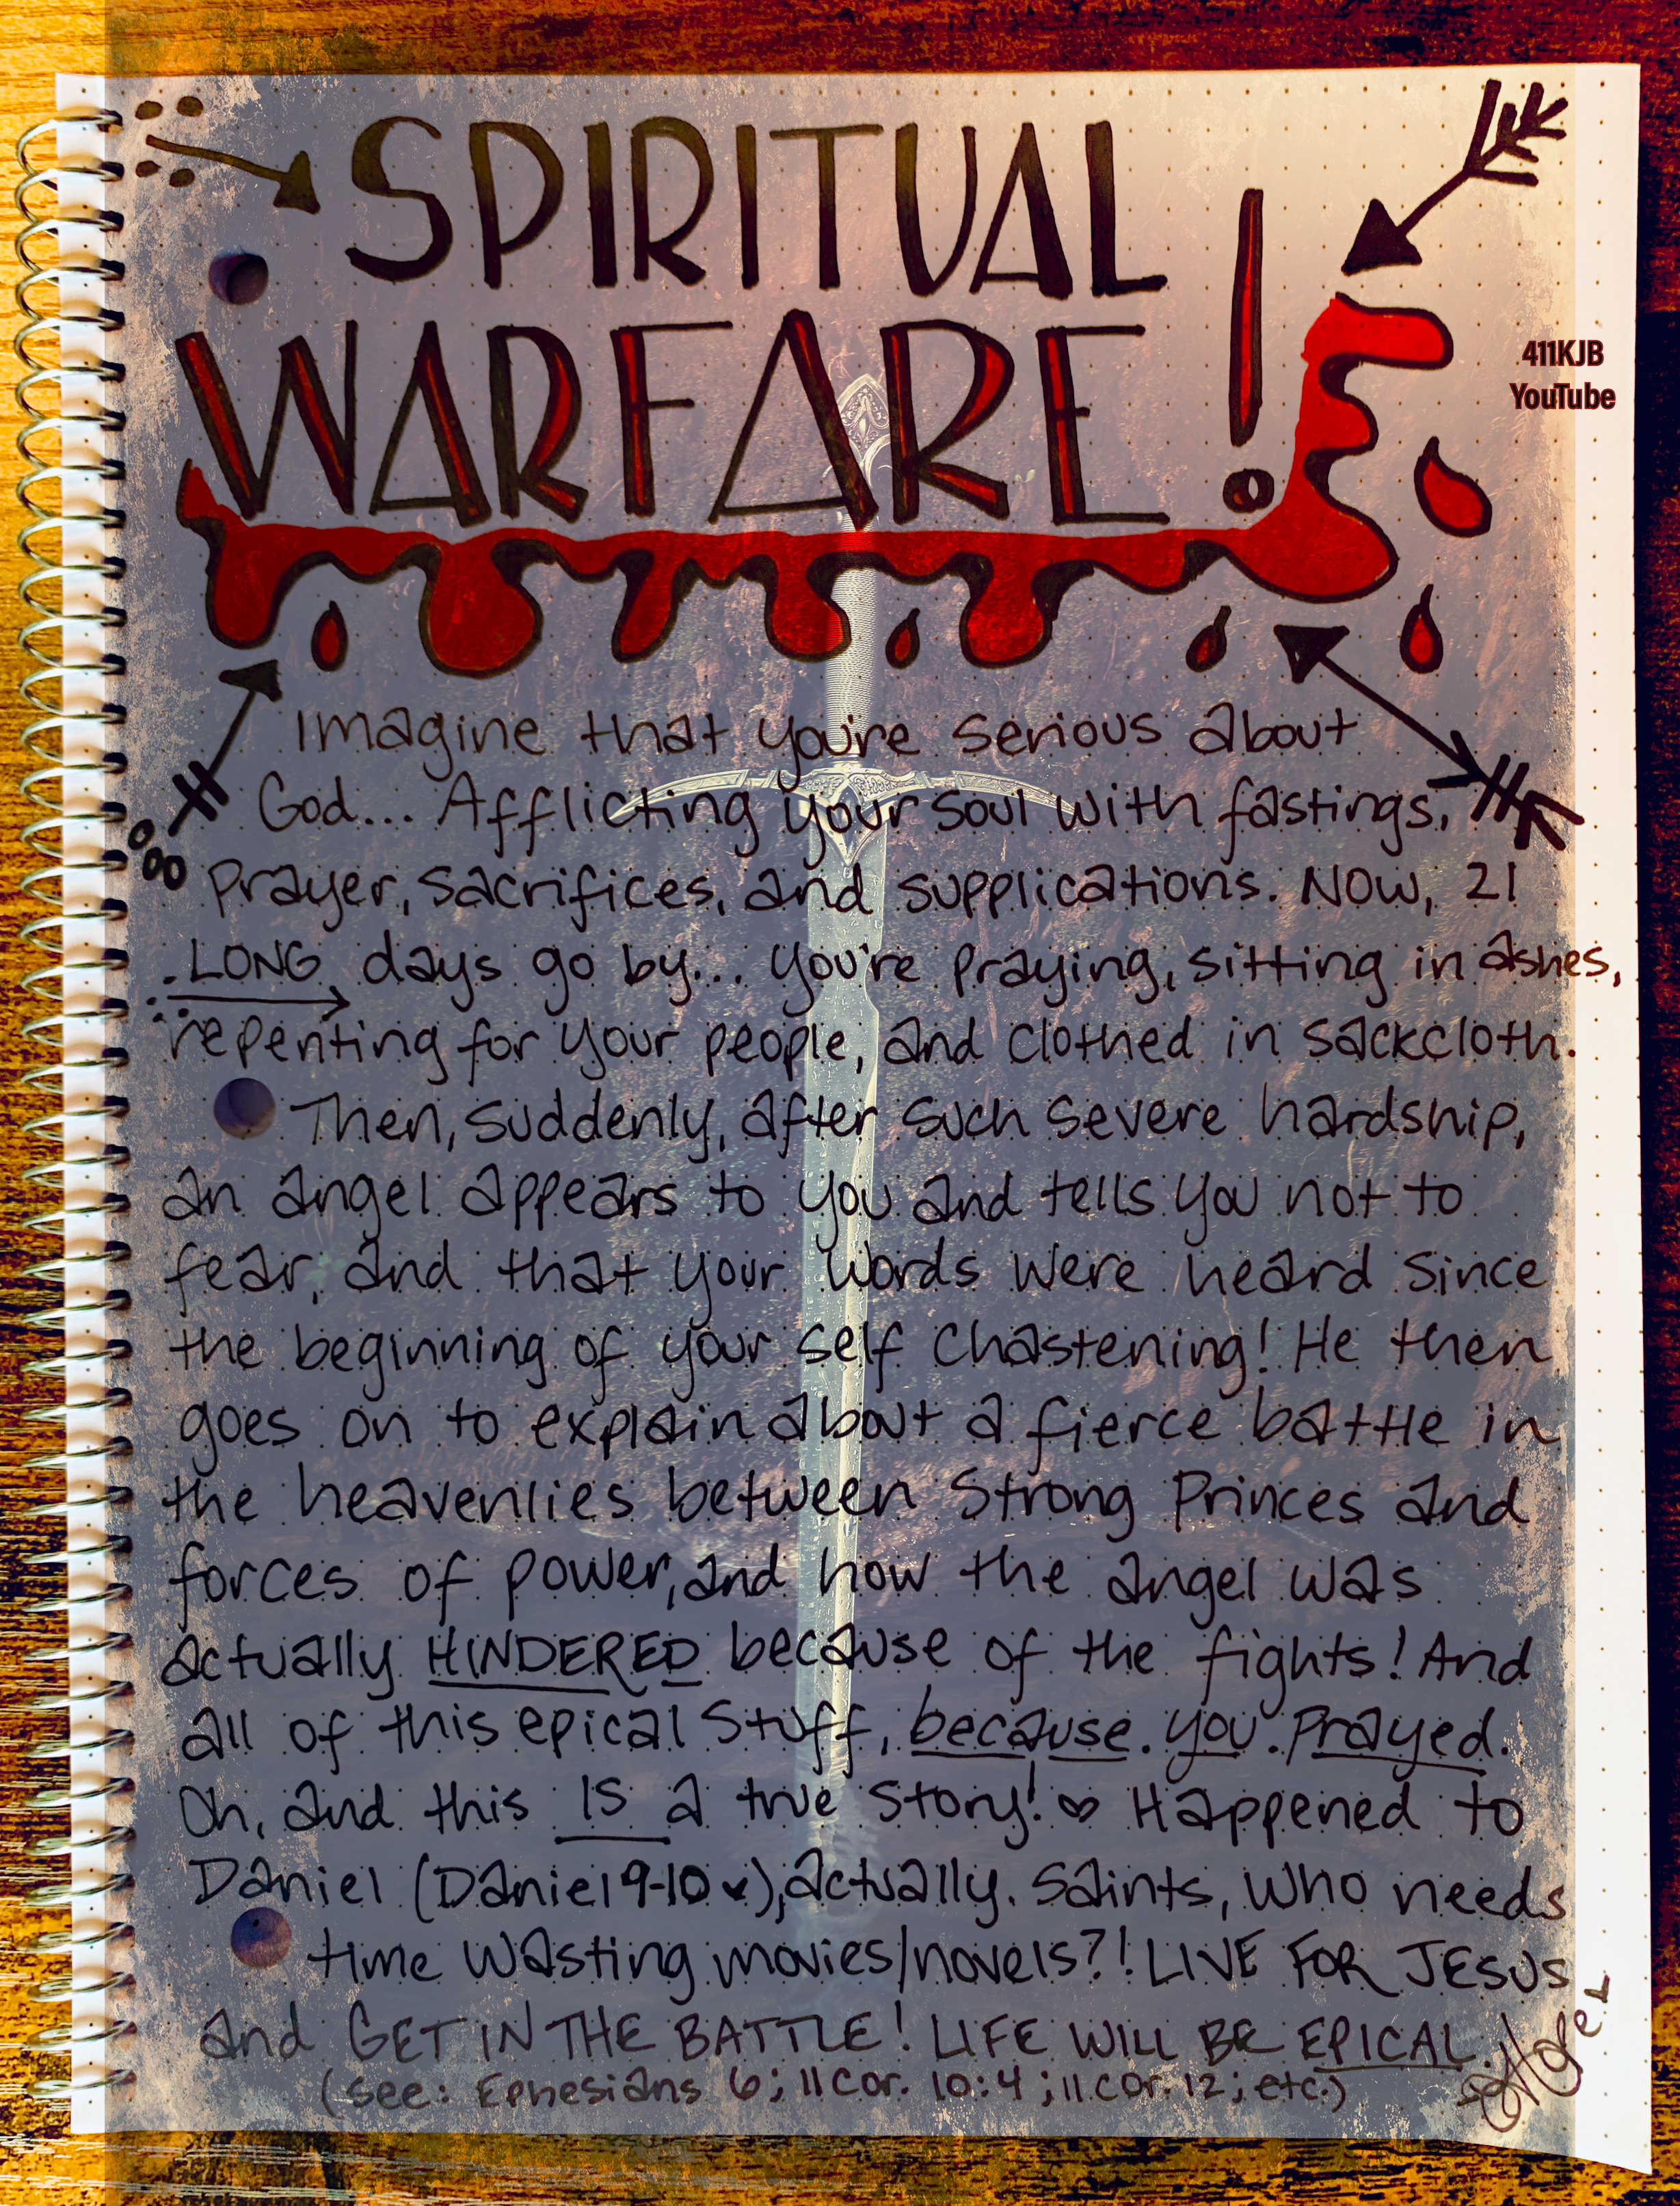 SPIRITUAL
WARFARE!
411KJB
YouTube
Imagine that you're serious about
God... Afflicting your soul with fastings,
prayer, sacrifices, and supplications. Now, 21
LONG days go by... you're praying, sitting in ashes,
repenting for your people, and clothed in sackcloth.
Then, suddenly, after such severe hardship,
an angel appears to you and tells you not to
fear, and that your words were heard since
the beginning of your self chastening! He then
goes on to explain about a fierce battle in
the heavenlies between strong Princes and
forces of power, and how the angel was
actually HINDERED because of the fights! And
all of this epical stuff, because. you. prayed.
Oh, and this IS a true story! ♡ Happened to
Daniel (Daniel 9-10 ♥), actually. Saints, who needs
time wasting movies/novels?! LIVE FOR JESUS
and GET IN THE BATTLE! LIFE WILL BE EPICAL.
(see: Ephesians 6; II Cor. 10:4; II Cor. 12; etc.)